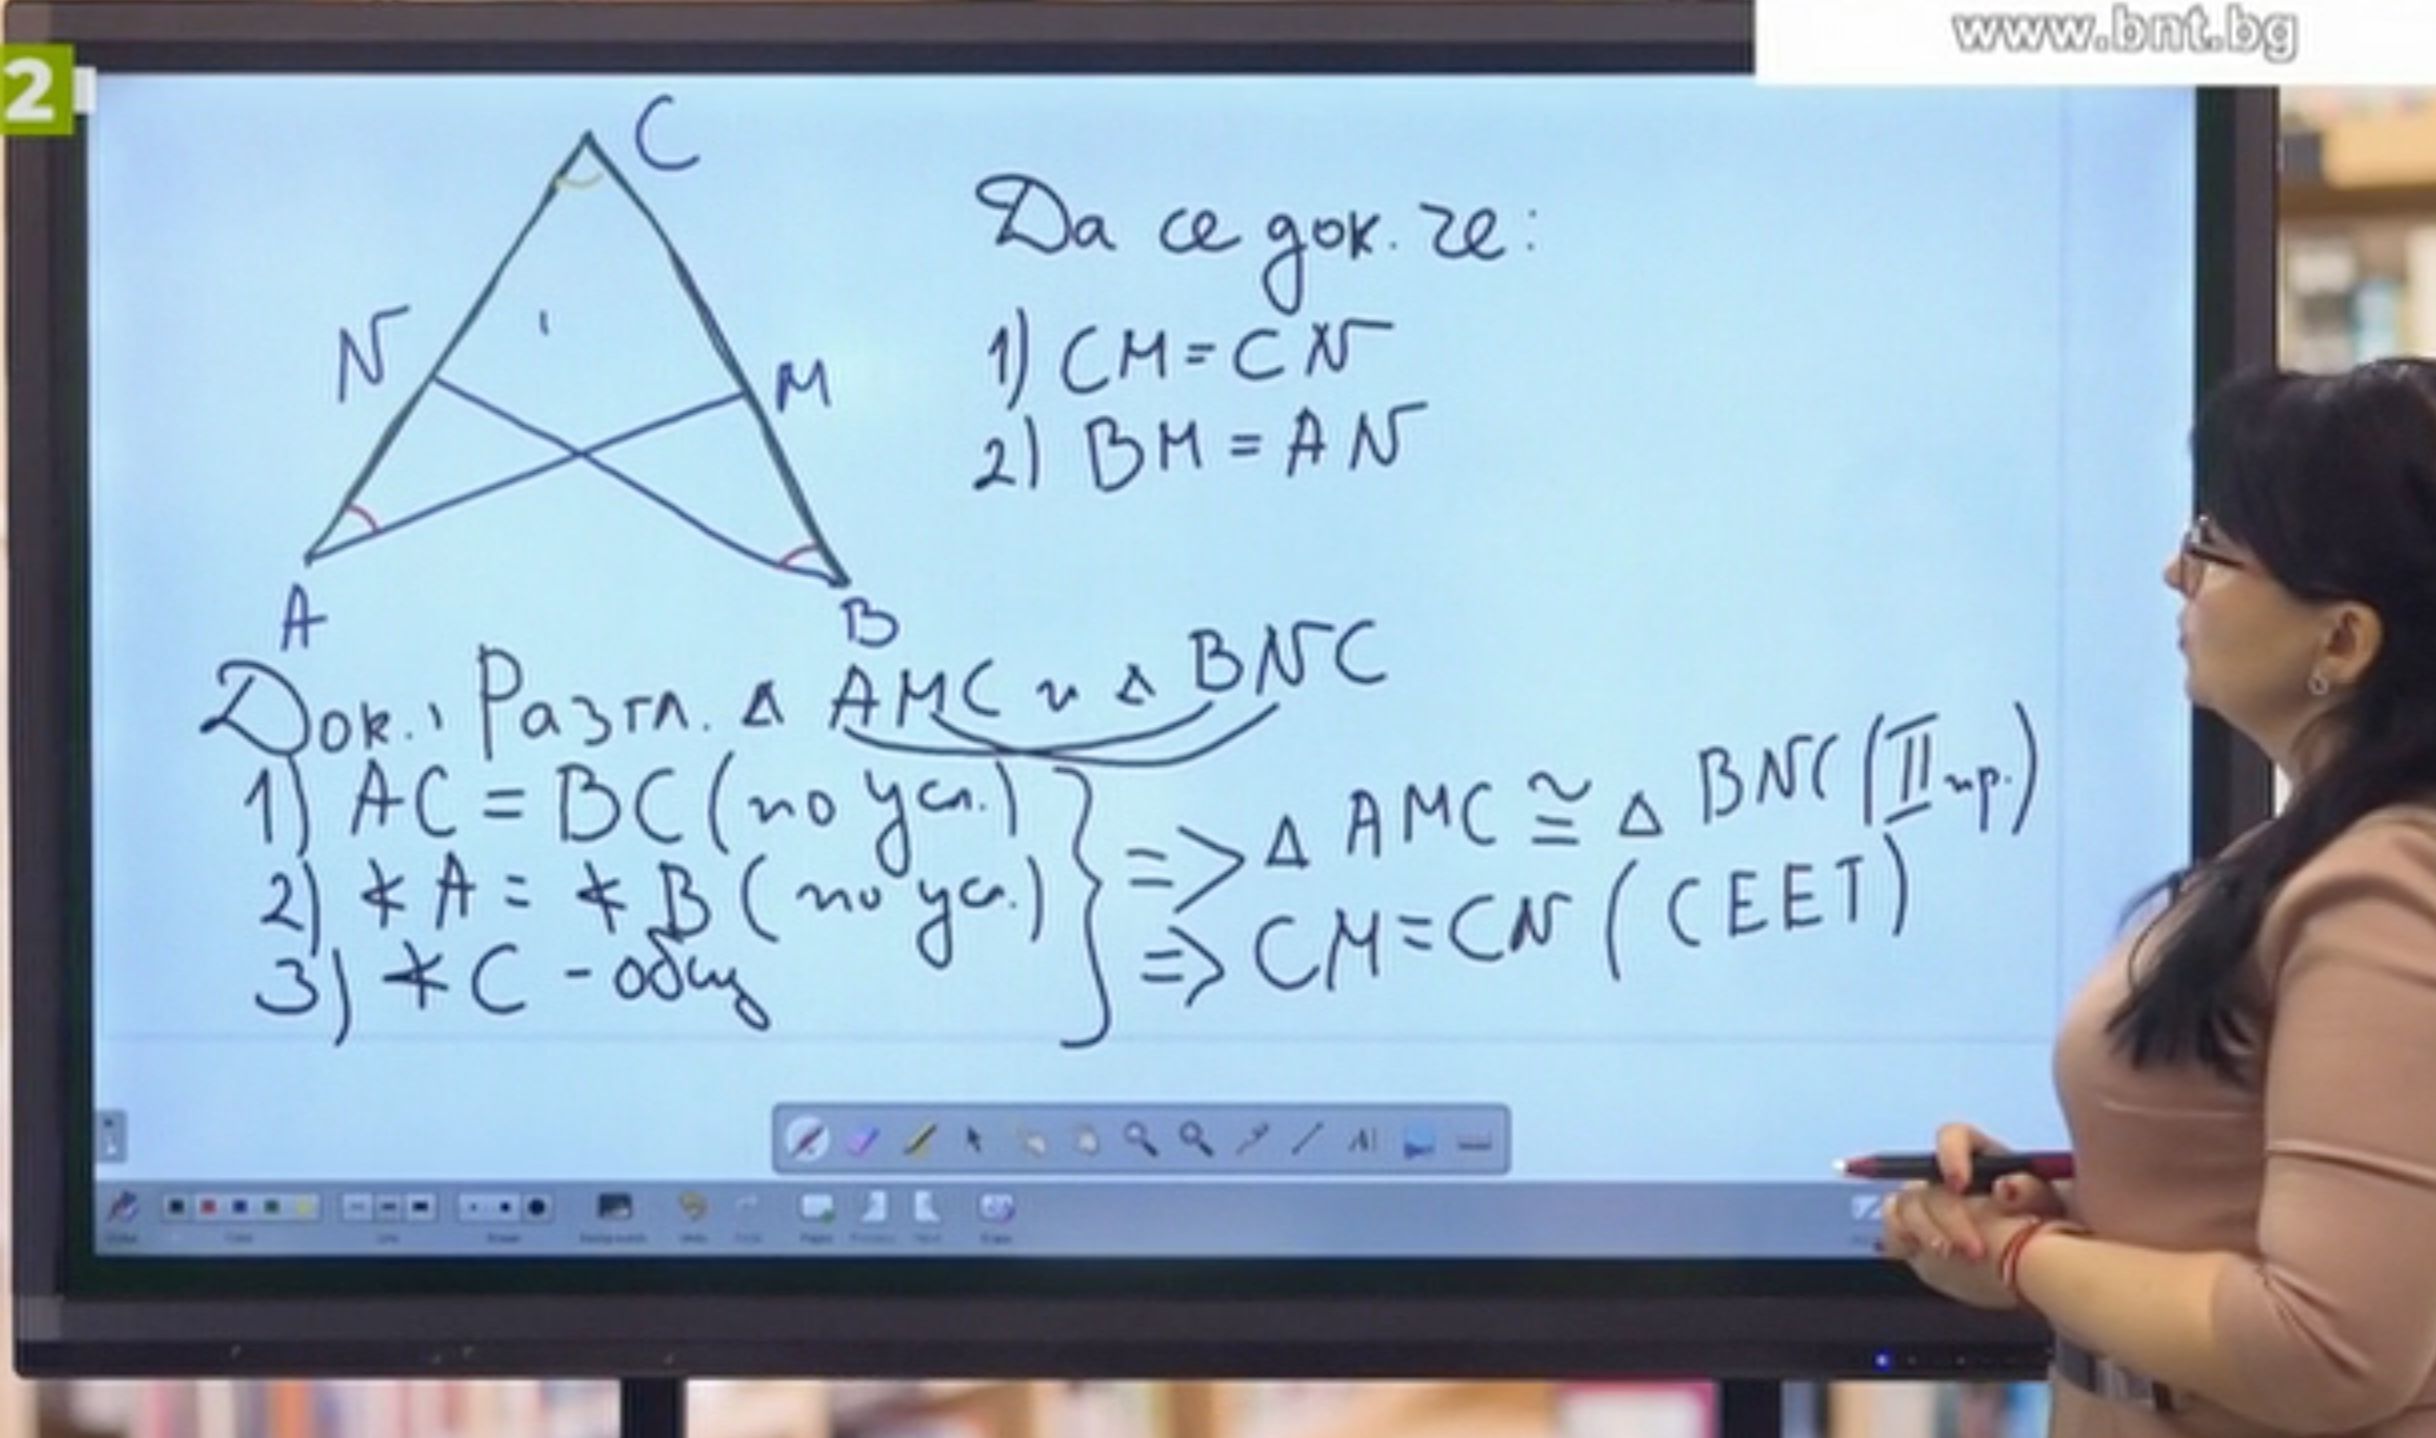 www.bnt.bg
2
C
N
M
A
B
Да се док. че:
1) CM = CN
2) BM = AN
Док.: Разгл. △ AMC и △ BNC
1) AC = BC (по усл.)
2) ∢ A = ∢ B (по усл.)
3) ∢ C - общ
=> △ AMC ≅ △ BNC (II пр.)
=> CM = CN (СЕЕТ)